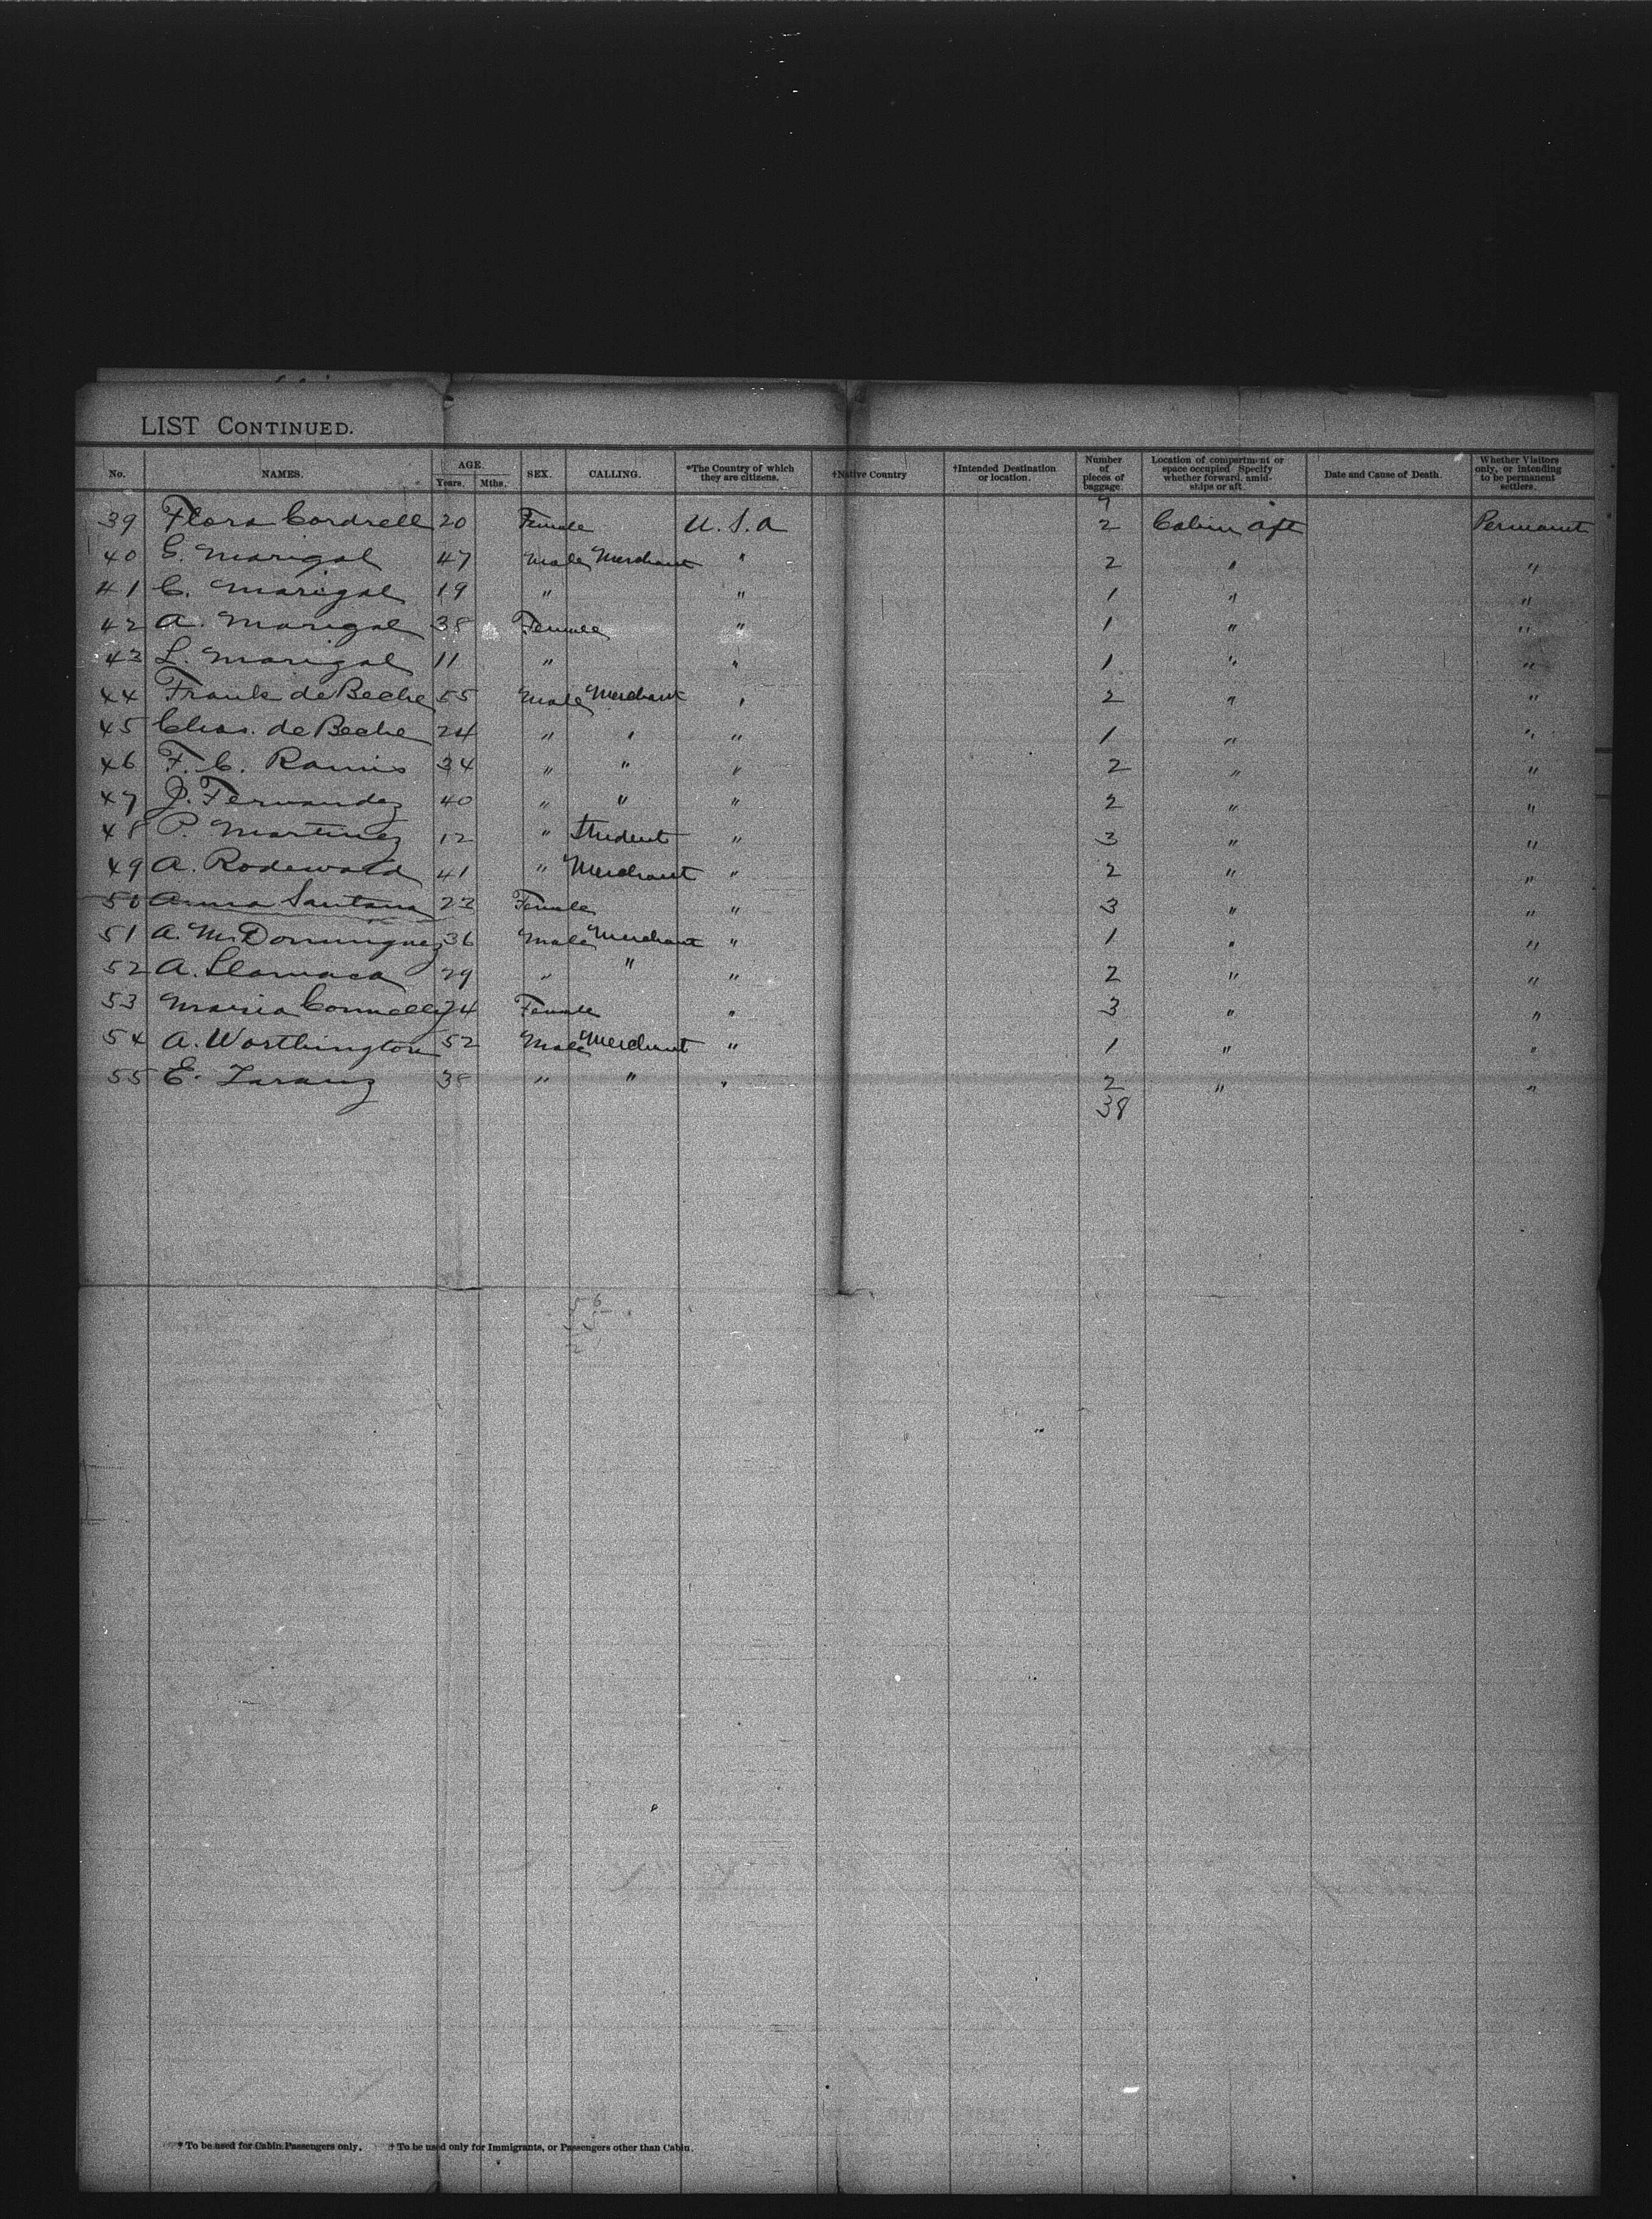 LIST CONTINUED.
No. NAMES. AGE. Years. Mths. SEX. CALLING. *The Country of which they are citizens. †Native Country †Intended Destination or location. Number of pieces of baggage Location of compartment or space occupied Specify whether forward, amidships or aft. Date and Cause of Death. Whether Visitors only, or intending to be permanent settlers.
39 Flora Cordrell 20 Female U.S.A 2 Cabin aft Permanent
40 C. Marigal 47 Male Merchant " 2 " "
41 C. Marigal 19 " " 1 " "
42 A. Marigal 38 Female " 1 " "
43 L. Marigal 11 " " 1 " "
44 Frank de Beche 55 Male Merchant " 2 " "
45 Chas. de Beche 24 " " " 1 " "
46 F. C. Ramis 34 " " " 2 " "
47 J. Fernandez 40 " " " 2 " "
48 P. Martinez 12 " Student " 3 " "
49 A. Rodewald 41 " Merchant " 2 " "
50 Anna Santana 23 Female " 3 " "
51 A. M. Dominguez 36 Male Merchant " 1 " "
52 A. Llamaca 29 " " " 2 " "
53 Maria Connelly 24 Female " 3 " "
54 A. Worthington 52 Male Merchant " 1 " "
55 E. 38 " " " 2 " "
38
* To be used for Cabin Passengers only. † To be used only for Immigrants, or Passengers other than Cabin.